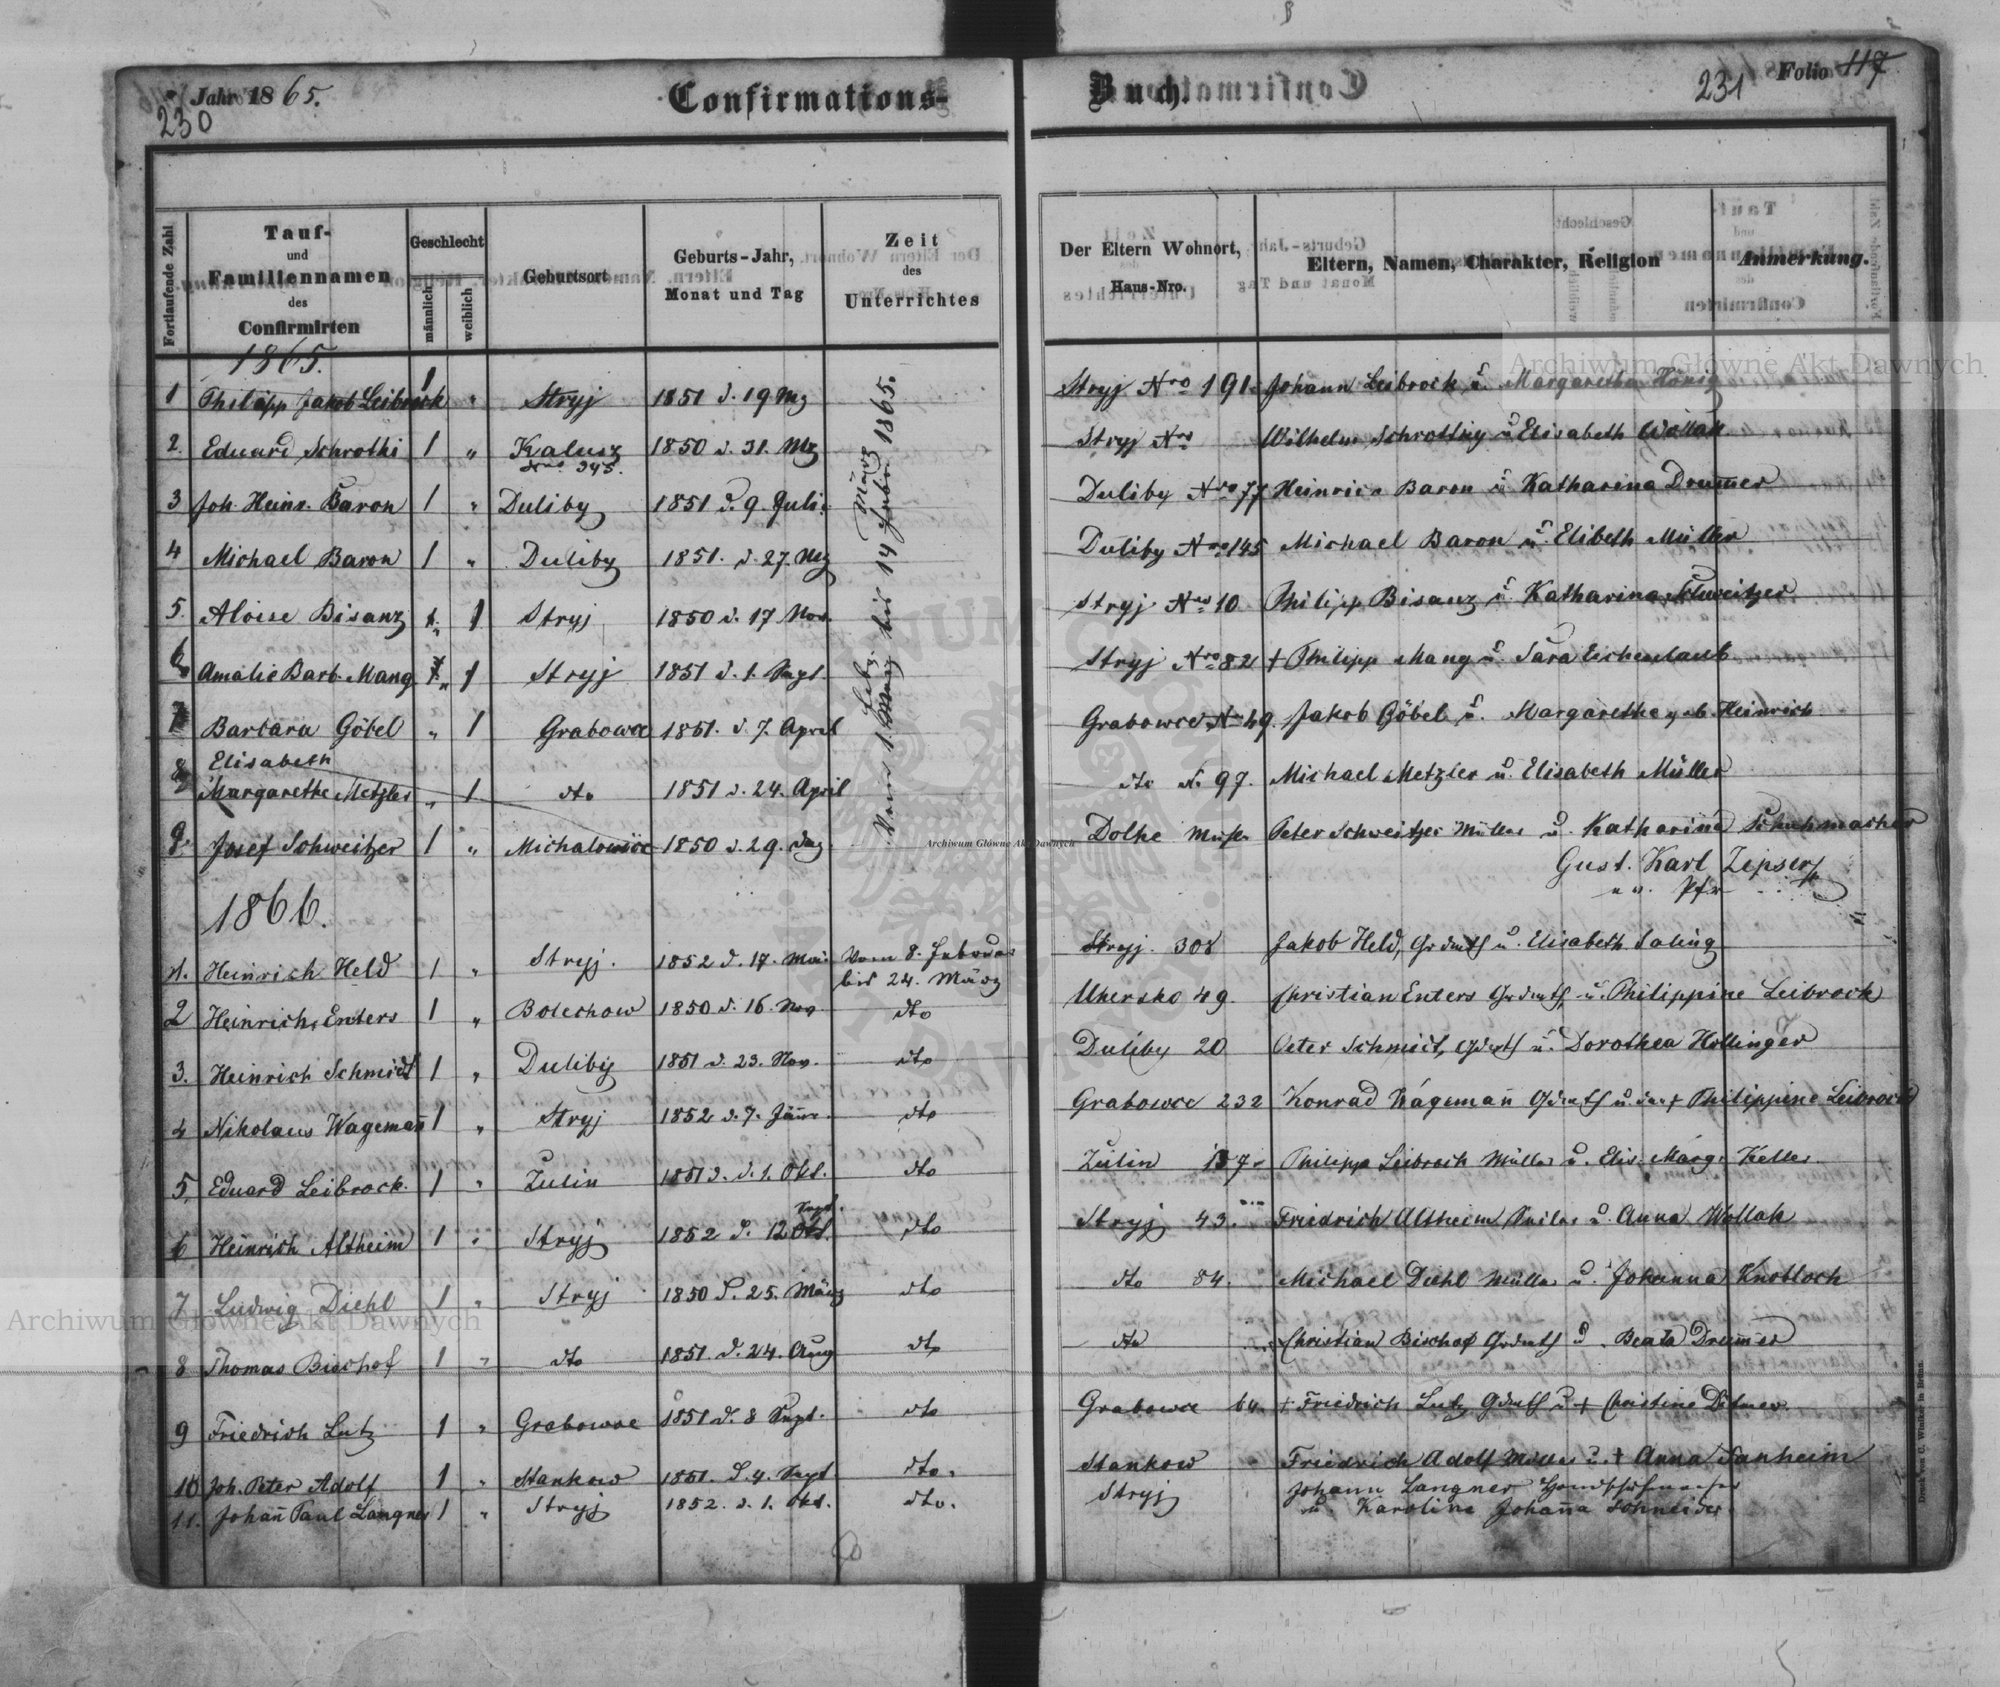 Jahr 1865.
230
Confirmations-
Buch.
231
Folio 117
Fortlaufende Zahl
Tauf-
und
Familiennamen
des
Confirmirten
Geschlecht
männlich
weiblich
Geburtsort
Geburts-Jahr,
Monat und Tag
Zeit
des
Unterrichtes
Der Eltern Wohnort,
Haus-Nro.
Eltern, Namen, Charakter, Religion
Anmerkung.
1865.
1 Philipp Jakob Leibrock 1 " Stryj 1851 d. 19 Mz Stryj Nro 191. Johann Leibrock u. Margaretha König
2. Eduard Schrothi 1 " Kalusz 1850 d. 31. Mz Stryj Nro Wilhelm Schrotthy u Elisabeth Wollak
Nro 345.
3 Joh. Heinr. Baron 1 " Duliby 1851 d. 9. Juli. Duliby Nro 77 Heinrich Baron u Katharina Drum̅er
4 Michael Baron 1 " Duliby 1851. d. 27. Mz Duliby Nro 145 Michael Baron u. Elibeth Müller
5. Aloise Bisanz " 1 Stryj 1850 d. 17 Nov. Stryj Nro 10 Philipp Bisanz u Katharina Schweitzer
6 Amalie Barb. Mang " 1 Stryj 1851 d. 1. Sept. Stryj Nro 82 + Philipp Mang u. Sara Eichenlaub
7 Barbara Göbel " 1 Grabowce 1851. d. 7. April Grabowce Nro 49. Jakob Göbel u. Margarethe geb. Heinrich
Elisabeth
8 Margarethe Metzler " 1 dto 1851 d. 24. April dto N. 97. Michael Metzler u. Elisabeth Müller
9. Josef Schweitzer 1 " Michalowice 1850 d. 29. Dolhe Peter Schweitzer Müller u. Katharina Schuhmacher
März
bis 14 1865.
Gust. Karl Zipser
Pfr
1866.
1. Heinrich Held 1 " Stryj. 1852 d. 17. Mai Vom 8. Februar Stryj. 308 Jakob Held, Grdwth u. Elisabeth Saling
bis 24. März
2 Heinrich Enters 1 " Bolechow 1850 d. 16. Nov dto Uhersko 49. Christian Enters Grdwth u. Philippine Leibrock
3. Heinrich Schmidt 1 " Duliby 1851 d. 23. Nov. dto Duliby 20 Peter Schmidt, Grdwth u. Dorothea Hollinger
4 Nikolaus Wageman̅ 1 " Stryj 1852 d. 7. Jän̅er. dto Grabowce 232 Konrad Wágeman̅ Grdwth u. der + Philippine Leibrock
5. Eduard Leibrock. 1 " Zulin 1851 d. 1. Okt. dto Zulin 157. Philipp Leibrock Müller u. Elis. Marg. Keller
6 Heinrich Altheim 1 " Stryj 1852 d. 12 Sept. Okt. dto Stryj 43. Friedrich Altheim Seiler u. Anna Wollak
7 Ludwig Diehl 1 " Stryj 1850 d. 25. März dto dto 84. Michael Diehl Müller u. Johanna Knobloch
8 Thomas Bischof 1 " dto 1851. d. 24. Aug dto dto Christian Bischof Grdwth u. Beata Drum̅er
9 Friedrich Lutz 1 " Grabowce 1851 d. 8 Sept. dto Grabowce 64. + Friedrich Lutz Grdwth u + Christine Ditmer
10 Joh. Peter Adolf 1 " Stankow 1851. d. 4. Sept dto. Stankow Friedrich Adolf Müller u. + Anna Sanheim
11. Johan̅ Paul Langner 1 " Stryj 1852. d. 1. Okt. dto. Stryj Johann Langner Handschuhmacher
u. Karoline Johan̅a Schneider
Druck von C. Winiker in Brünn.
Archiwum Główne Akt Dawnych
Archiwum Główne Akt Dawnych
Archiwum Główne Akt Dawnych